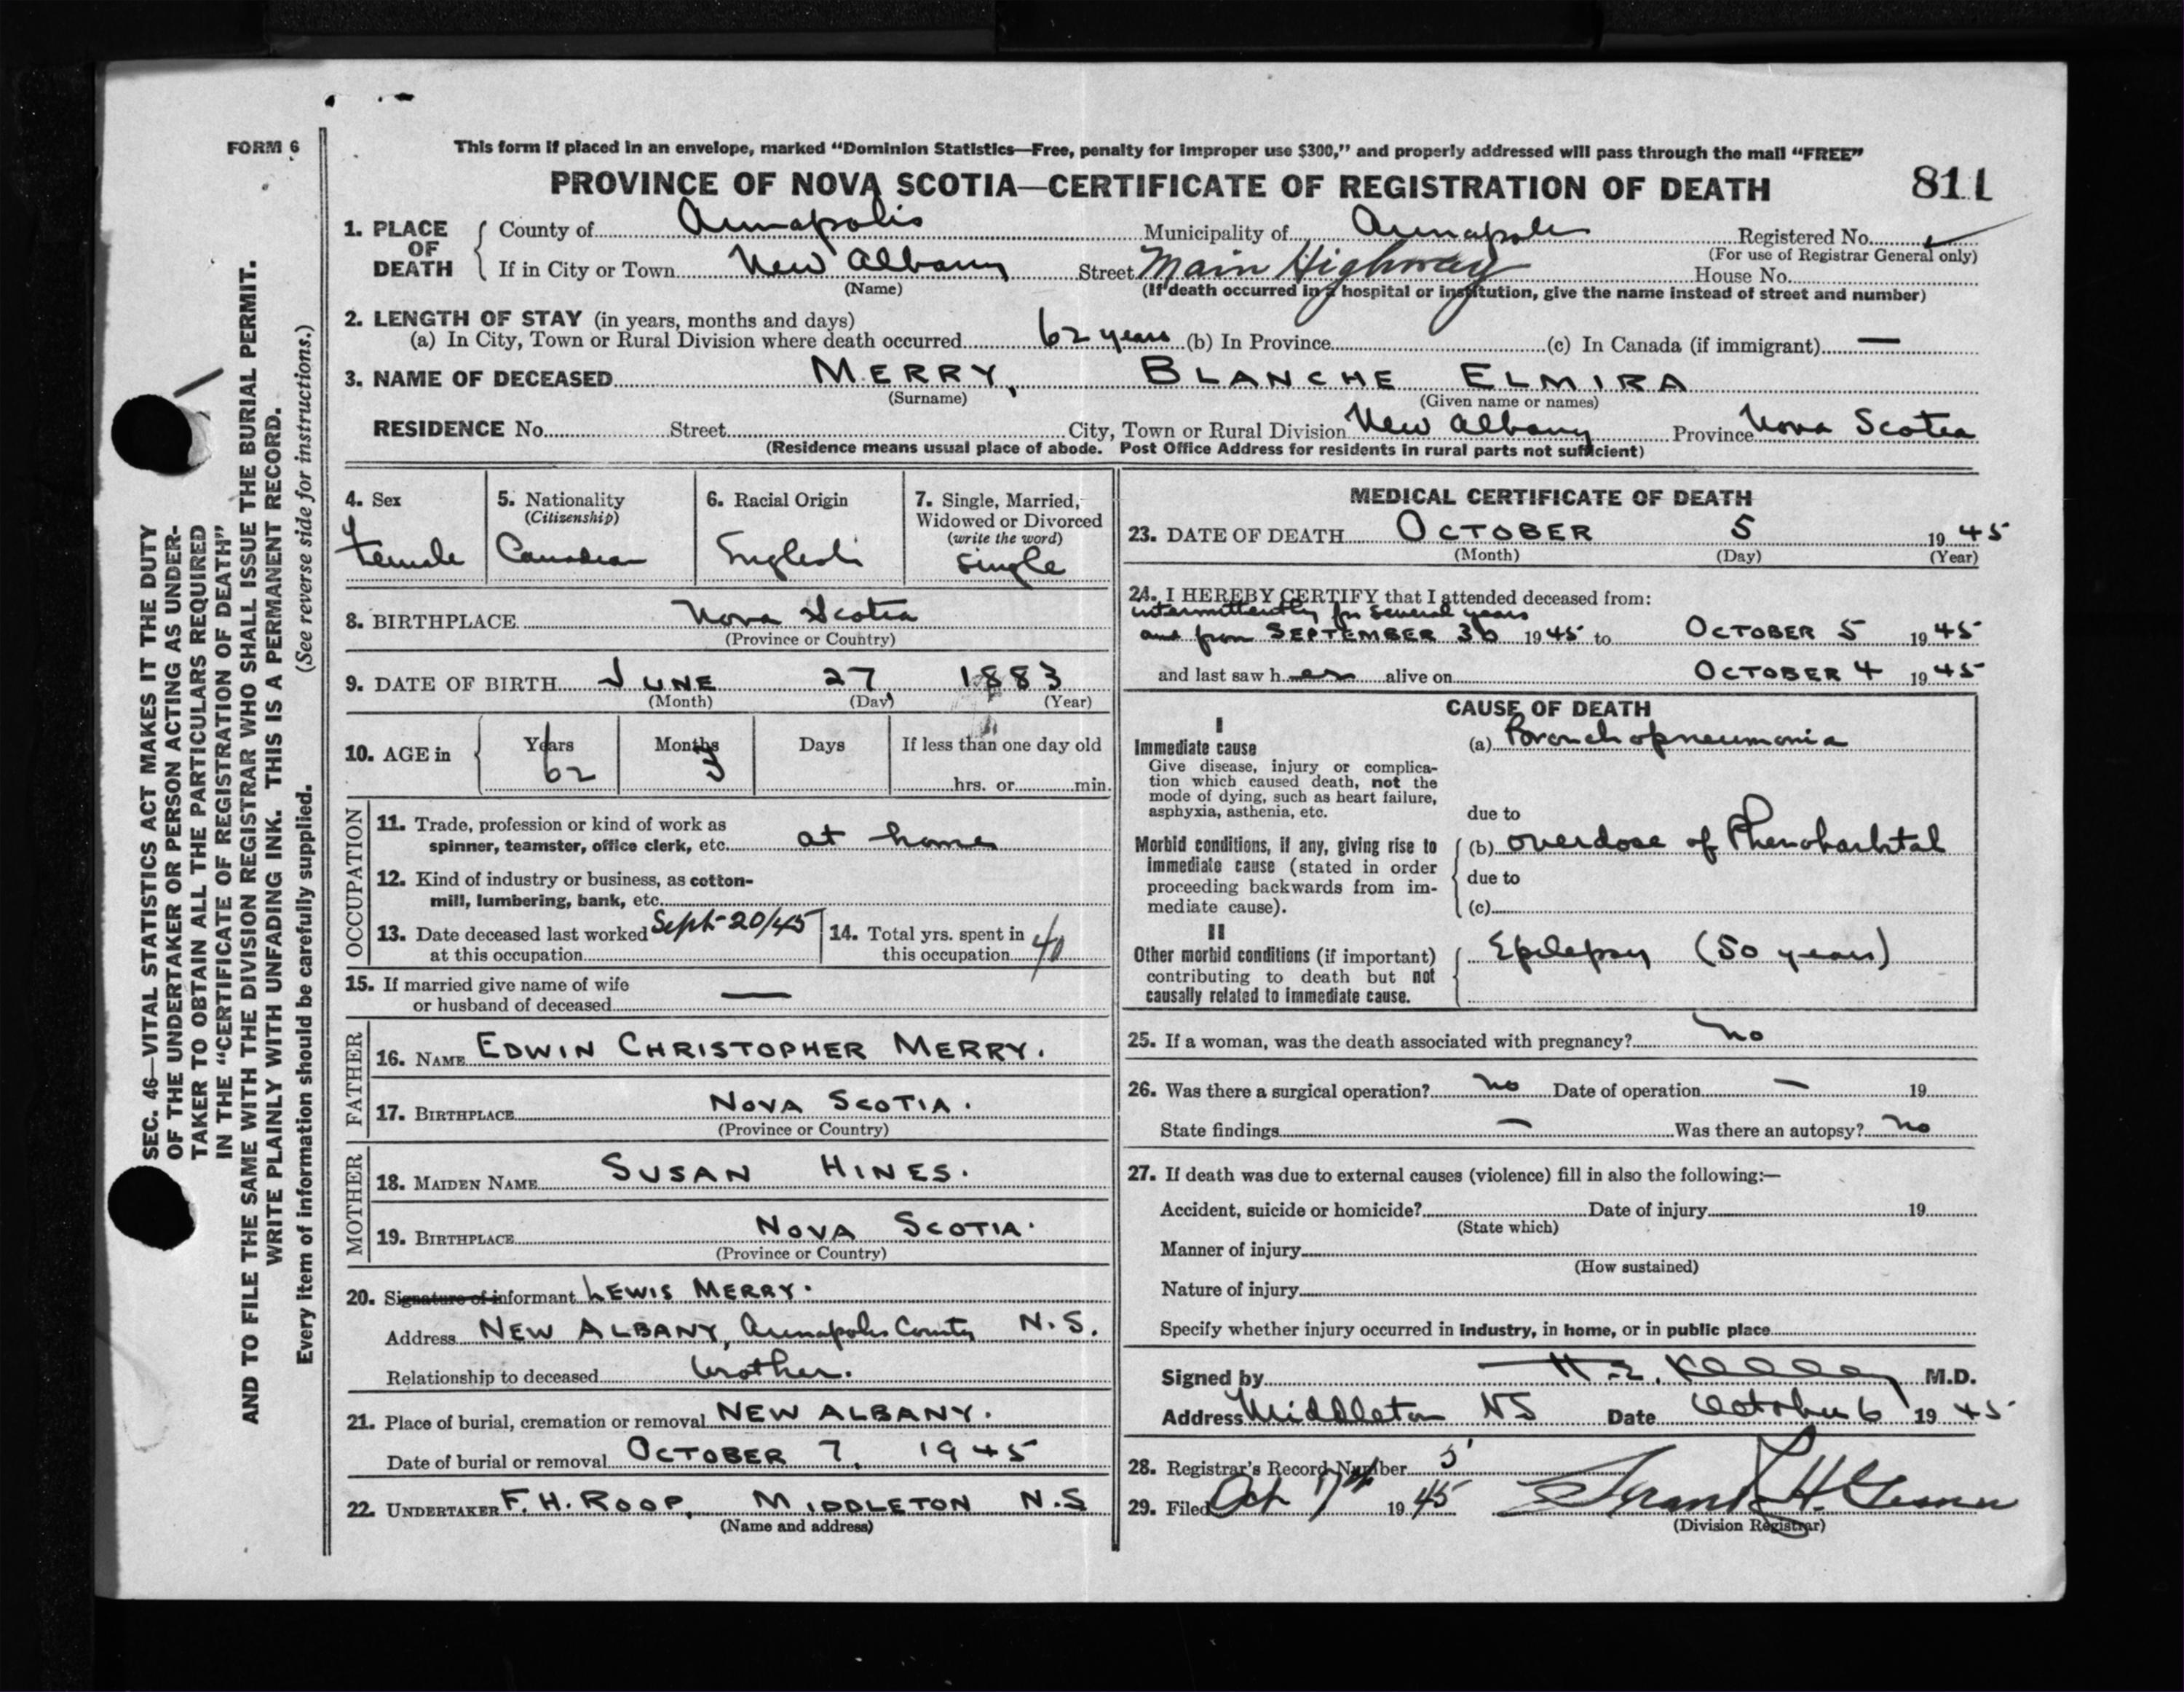 FORM 6
This form if placed in an envelope, marked “Dominion Statistics—Free, penalty for improper use $300,” and properly addressed will pass through the mail “FREE”
PROVINCE OF NOVA SCOTIA—CERTIFICATE OF REGISTRATION OF DEATH 811
1. PLACE OF DEATH
County of Annapolis Municipality of Annapolis Registered No.
(For use of Registrar General only)
If in City or Town New Albany Street Main Highway House No.
(Name) (If death occurred in a hospital or institution, give the name instead of street and number)
2. LENGTH OF STAY (in years, months and days)
(a) In City, Town or Rural Division where death occurred 62 years (b) In Province (c) In Canada (if immigrant) —
3. NAME OF DECEASED MERRY, BLANCHE ELMIRA
(Surname) (Given name or names)
RESIDENCE No. Street City, Town or Rural Division New Albany Province Nova Scotia
(Residence means usual place of abode. Post Office Address for residents in rural parts not sufficient)
4. Sex
Female
5. Nationality
(Citizenship)
Canadian
6. Racial Origin
English
7. Single, Married,
Widowed or Divorced
(write the word)
Single
8. BIRTHPLACE Nova Scotia
(Province or Country)
9. DATE OF BIRTH JUNE 27, 1883
(Month) (Day) (Year)
10. AGE in Years Months Days If less than one day old
62 3 hrs. or min.
OCCUPATION
11. Trade, profession or kind of work as
spinner, teamster, office clerk, etc. at home
12. Kind of industry or business, as cotton-
mill, lumbering, bank, etc.
13. Date deceased last worked Sept-20/45
at this occupation
14. Total yrs. spent in
this occupation 40
15. If married give name of wife
or husband of deceased —
FATHER
16. NAME EDWIN CHRISTOPHER MERRY.
17. BIRTHPLACE NOVA SCOTIA.
(Province or Country)
MOTHER
18. MAIDEN NAME SUSAN HINES.
19. BIRTHPLACE NOVA SCOTIA.
(Province or Country)
20. Signature of informant LEWIS MERRY.
Address NEW ALBANY, Annapolis County N.S.
Relationship to deceased brother.
21. Place of burial, cremation or removal NEW ALBANY.
Date of burial or removal OCTOBER 7, 1945
22. UNDERTAKER F. H. ROOP, MIDDLETON N.S
(Name and address)
MEDICAL CERTIFICATE OF DEATH
23. DATE OF DEATH OCTOBER 5 1945
(Month) (Day) (Year)
24. I HEREBY CERTIFY that I attended deceased from:
intermittently for several years
and from SEPTEMBER 30 1945 to OCTOBER 5 1945
and last saw her alive on OCTOBER 4 1945
CAUSE OF DEATH
I
Immediate cause
Give disease, injury or complica-
tion which caused death, not the
mode of dying, such as heart failure,
asphyxia, asthenia, etc.
(a) Bronchopneumonia
due to
Morbid conditions, if any, giving rise to
immediate cause (stated in order
proceeding backwards from im-
mediate cause).
(b) overdose of Phenobarbital
due to
(c)
II
Other morbid conditions (if important)
contributing to death but not
causally related to immediate cause.
Epilepsy (50 years)
25. If a woman, was the death associated with pregnancy? no
26. Was there a surgical operation? no Date of operation — 19
State findings — Was there an autopsy? no
27. If death was due to external causes (violence) fill in also the following:—
Accident, suicide or homicide? Date of injury 19
(State which)
Manner of injury
(How sustained)
Nature of injury
Specify whether injury occurred in industry, in home, or in public place
Signed by H.E. Kelley M.D.
Address Middleton NS Date October 6 1945
28. Registrar's Record Number 5
29. Filed Oct 7th 1945 Frank H.
(Division Registrar)
SEC. 46—VITAL STATISTICS ACT MAKES IT THE DUTY
OF THE UNDERTAKER OR PERSON ACTING AS UNDER-
TAKER TO OBTAIN ALL THE PARTICULARS REQUIRED
IN THE “CERTIFICATE OF REGISTRATION OF DEATH”
AND TO FILE THE SAME WITH THE DIVISION REGISTRAR WHO SHALL ISSUE THE BURIAL PERMIT.
WRITE PLAINLY WITH UNFADING INK. THIS IS A PERMANENT RECORD.
Every item of information should be carefully supplied. (See reverse side for instructions.)